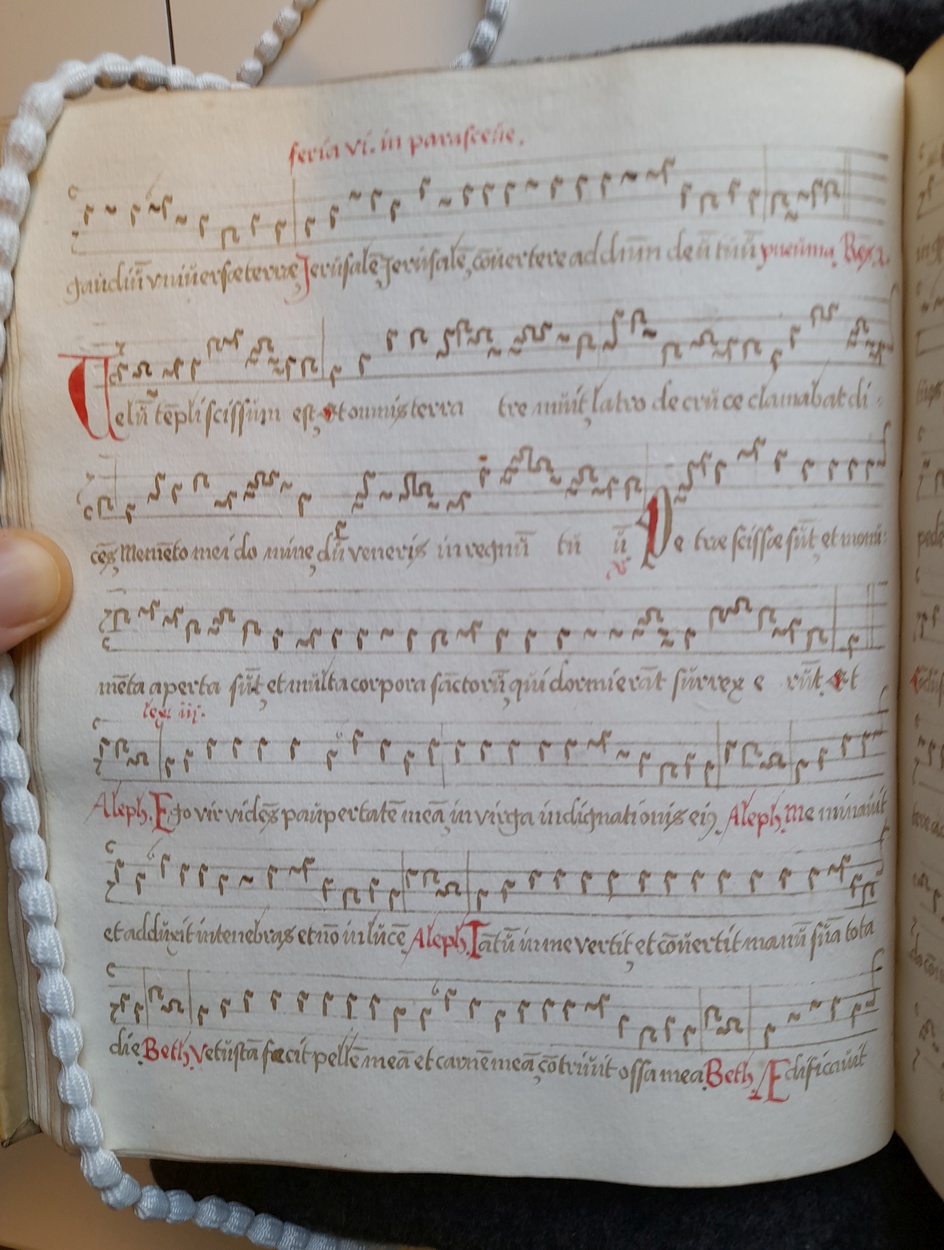 feria vi. in parasceue.
gaudiū vniuersæ terræ, Jerusalē, Jerusalē, cōuertere ad dnm deū tuū
Velū tēpli scissum est, et omnis terra tre muit, latro de cruce clamabat di
cēs, Memēto mei do mine, dū veneris in regnū tu ū Pe træ scissæ sūt, et monu:
mēta aperta sūt, et multa corpora sāctorū, qui dormierāt surrexe rūt. et
lex iii.
Aleph. Ego vir vidēs paupertatē meā, in virga indignationis eiꝯ Aleph. Me minauit
et adduxit in tenebras et nō in lucē Aleph. Tātū in me vertit, et cōuertit manū suā tota
die Beth. Vetustā fecit pellē meā et carnē meā, cōtriuit ossa mea Beth. Ædificauit